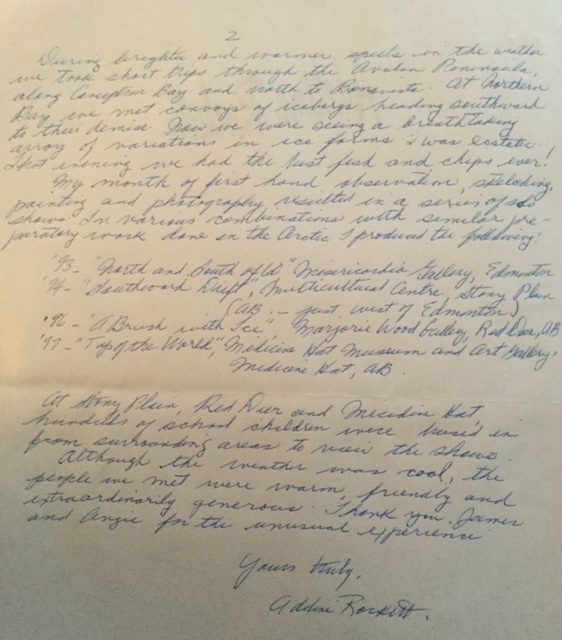 2
During brighter and warmer spells in the weather
we took short trips through the Avalon Peninsula,
along Conception Bay and north to Bonavista. At Northern
Bay we met convoys of icebergs heading southward
to their demise. Now we were seeing a breathtaking
array of variations in ice forms. I was ecstatic!
That evening we had the best fish and chips ever!
My month of first hand observation, sketching,
painting and photography resulted in a series of solo
shows. In various combinations with similar pre-
paratory work done in the Arctic I produced the following:
'93 - "North and South of 60" Misericordia Gallery, Edmonton
'94 - "Southward Drift", Multicultural Centre, Stony Plain
(AB. - just west of Edmonton)
'96 - "A Brush with Ice", Marjorie Wood Gallery, Red Deer, AB
'97 - "Top of the World", Medicine Hat Museum and Art Gallery,
Medicine Hat, AB.
At Stony Plain, Red Deer and Medicine Hat
hundreds of school children were bused in
from surrounding areas to view the shows.
Although the weather was cool, the
people we met were warm, friendly and
extraordinarily generous. Thank you James
and Angie for the unusual experience
Yours truly,
Adeline Rockett.